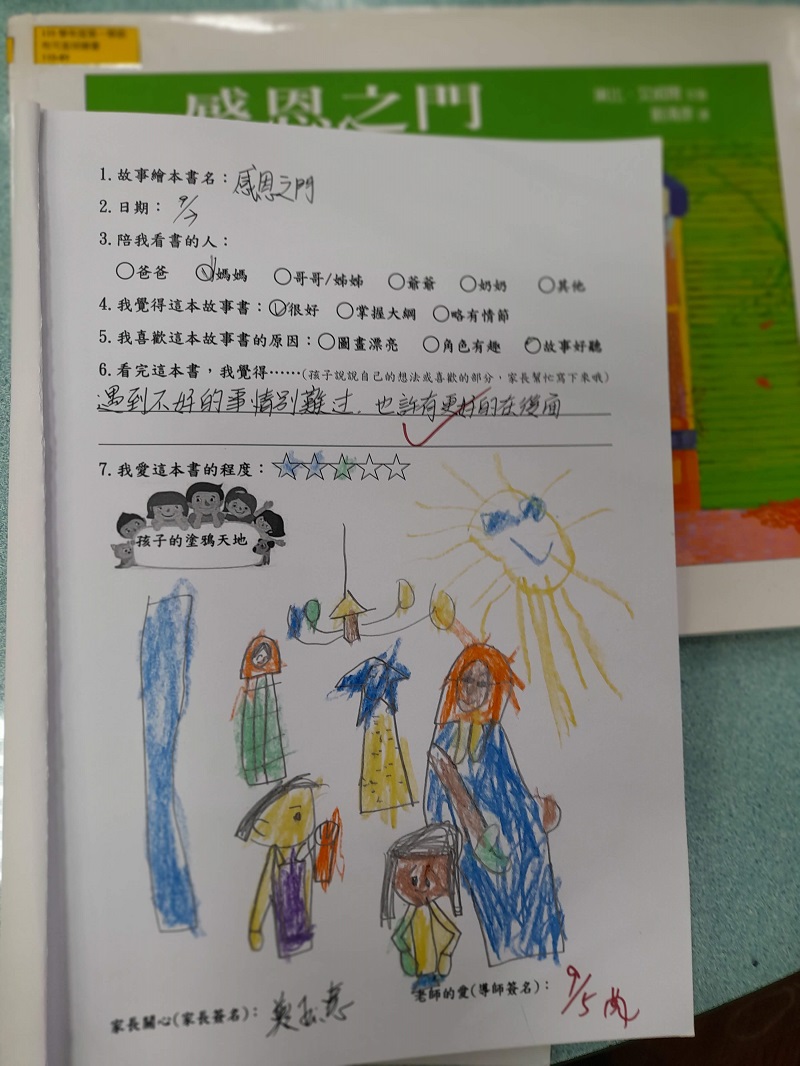 感恩之門
1.故事繪本書名：感恩之門
2.日期：
3.陪我看書的人：
○爸爸 ○媽媽 ○哥哥/姊姊 ○爺爺 ○奶奶 ○其他
4.我覺得這本故事書：○很好 ○掌握大綱 ○略有情節
5.我喜歡這本故事書的原因：○圖畫漂亮 ○角色有趣 ○故事好聽
6.看完這本書，我覺得……(孩子說說自己的想法或喜歡的部分，家長幫忙寫下來哦)
遇到不好的事情別難過，也許有更好的在後面
7.我愛這本書的程度：☆☆☆☆☆
孩子的塗鴉天地
家長關心(家長簽名)：
老師的愛(導師簽名)：9/5